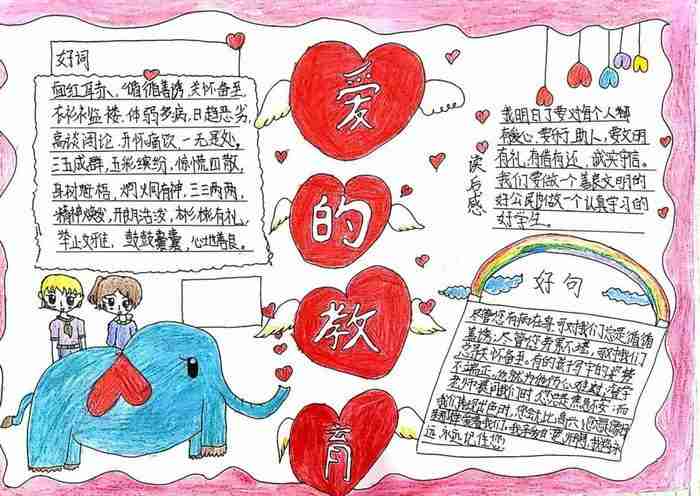 爱的教育
好词
面红耳赤、循循善诱、关怀备至、
衣衫褴褛、体弱多病、日趋恶劣、
高谈阔论、开怀痛饮、一无是处、
三五成群、五彩缤纷、惊慌四散、
身材魁梧、炯炯有神、三三两两、
精神焕发、开朗活泼、彬彬有礼、
举止好怪、鼓鼓囊囊、心地善良。
读后感
我明白了要对每个人都
有爱心,要乐于助人,要文明
有礼,有借有还,诚实守信。
我们要做一个善良文明的
好公民,做一个认真学习的
好学生。
好句
尽管您有病在身,可对我们总是循循
善诱,尽管您劳累不堪,可对我们
总是关怀备至。有的孩子字的坐姿
不端正,您就为他们心
老师提问我们时
我们表现出色时,您就
远永远记住您!